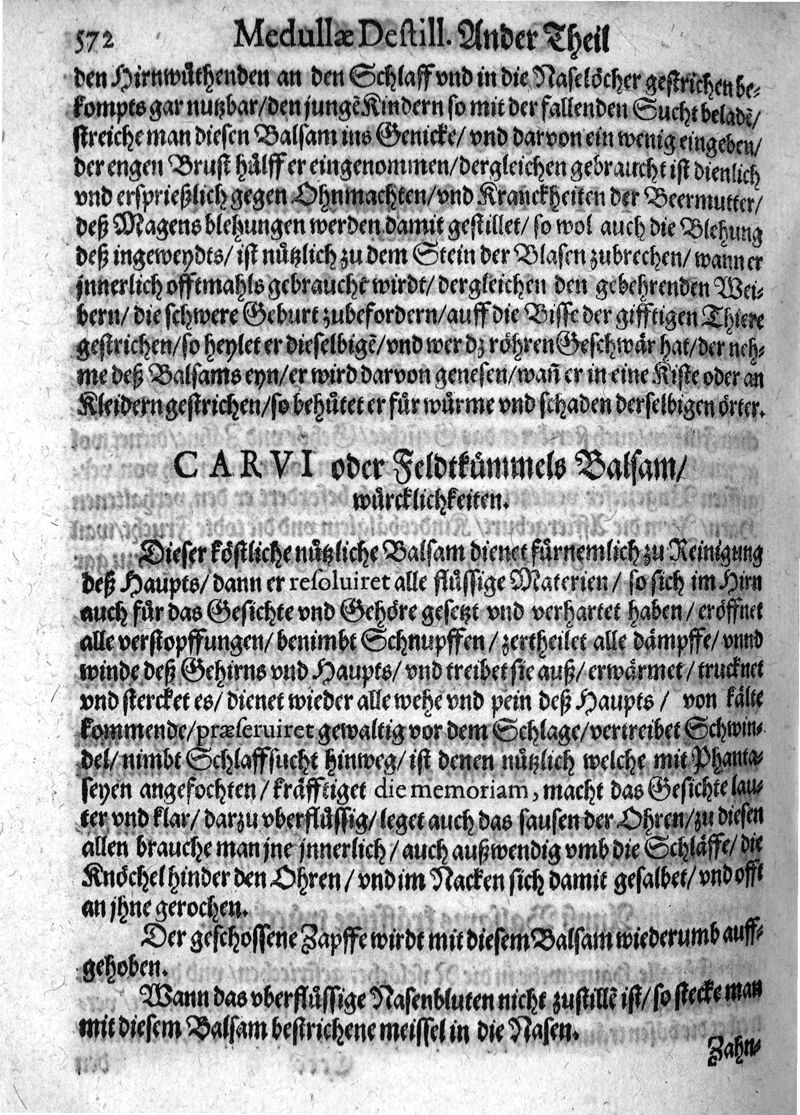 572 Medullæ Destill. Ander Theil
den Hirnwüthenden an den Schlaff vnd in die Naselöcher gestrichen be-
kompts gar nutzbar/den jungẽ Kindern so mit der fallenden Sucht beladẽ/
streiche man diesen Balsam ins Genicke/ vnd darvon ein wenig eingeben/
der engen Brust hülff er eingenommen/dergleichen gebraucht ist dienlich
vnd ersprießlich gegen Ohnmachten/vnd Kranckheiten der Beermutter/
deß Magens blehungen werden damit gestillet/ so wol auch die Blehung
deß ingeweydts/ ist nützlich zu dem Stein der Blasen zubrechen/ wann er
jnnerlich offtmahls gebraucht wirdt/ dergleichen den gebehrenden Wei-
bern/ die schwere Geburt zubefordern/auff die Bisse der gifftigen Thiere
gestrichen/so heylet er dieselbigẽ/vnd wer dz röhren Geschwär hat/der neh-
me deß Balsams eyn/er wird darvon genesen/wañ er in eine Kiste oder an
Kleidern gestrichen/so behütet er für würme vnd schaden derselbigen örter.
CARVI oder Feldtkümmels Balsam/
würcklichkeiten.
Dieser köstliche nützliche Balsam dienet fürnemlich zu Reinigung
deß Haupts/ dann er resoluiret alle flüssige Materien/ so sich im Hirn
auch für das Gesichte vnd Gehöre gesetzt vnd verhartet haben/ eröffnet
alle verstopffungen/ benimbt Schnupffen/ zertheilet alle dämpffe/ vnnd
winde deß Gehirns vnd Haupts/ vnd treibet sie auß/ erwärmet/ trucknet
vnd stercket es/ dienet wieder alle wehe vnd pein deß Haupts/ von kälte
kommende/præseruiret gewaltig vor dem Schlage/vertreibet Schwin-
del/ nimbt Schlaffsucht hinweg/ ist denen nützlich welche mit Phanta-
seyen angefochten/ kräfftiget die memoriam, macht das Gesichte lau-
ter vnd klar/ darzu vberflüssig/ leget auch das sausen der Ohren/ zu diesen
allen brauche man jne jnnerlich/ auch außwendig vmb die Schläffe/ die
Knöchel hinder den Ohren/ vnd im Nacken sich damit gesalbet/ vnd offt
an jhne gerochen.
Der geschossene Zapffe wirdt mit diesem Balsam wiederumb auff-
gehoben.
Wann das vberflüssige Nasenbluten nicht zustillẽ ist/ so stecke man
mit diesem Balsam bestrichene meissel in die Nasen.
Zahn-